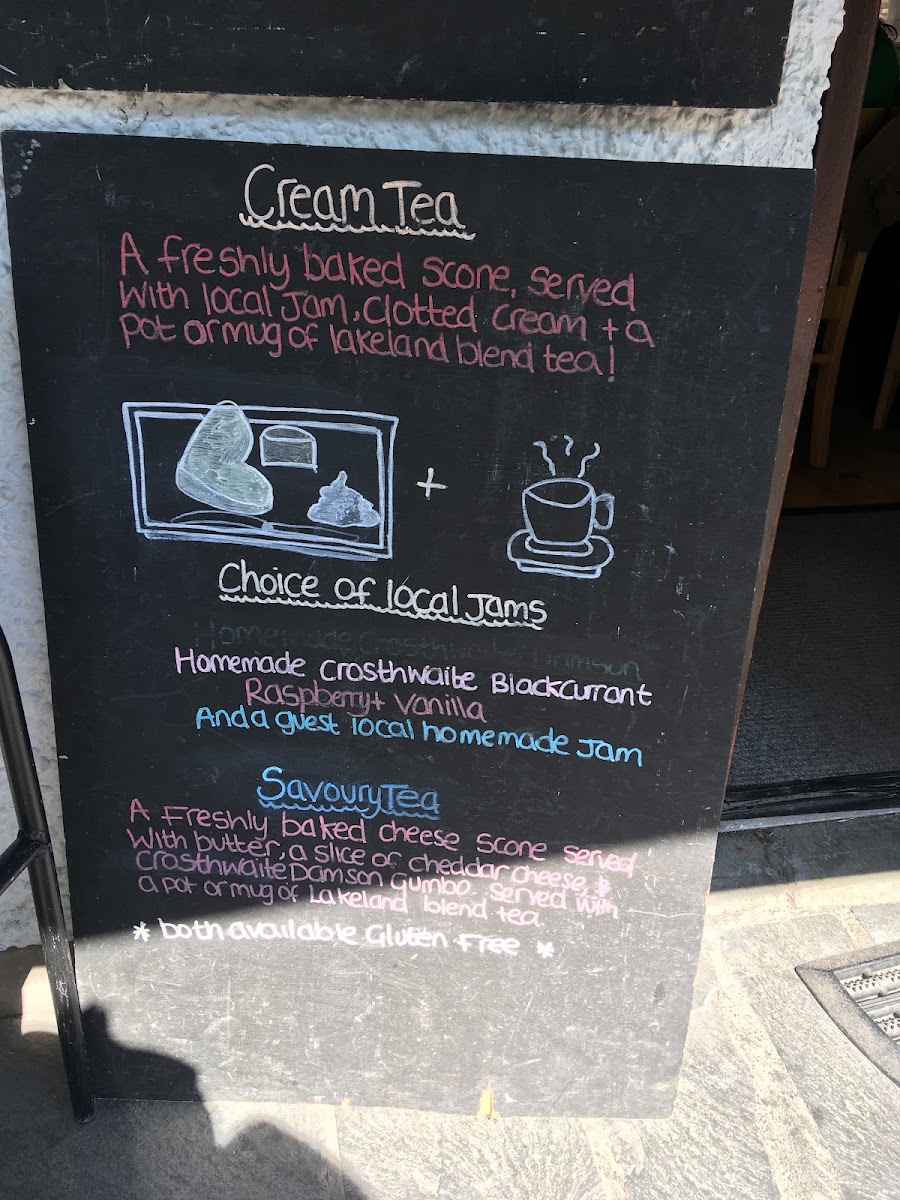 Cream Tea
A freshly baked scone, served
with local Jam, Clotted Cream + a
pot or mug of lakeland blend tea!
+
Choice of local Jams
Homemade Crosthwaite Damson
Homemade Crosthwaite Blackcurrant
Raspberry + Vanilla
And a guest local homemade Jam
Savoury Tea
A Freshly baked cheese scone served
with butter, a slice of cheddar cheese, &
Crosthwaite Damson Gumbo. Served with
a pot or mug of Lakeland blend tea
* both available Gluten Free *